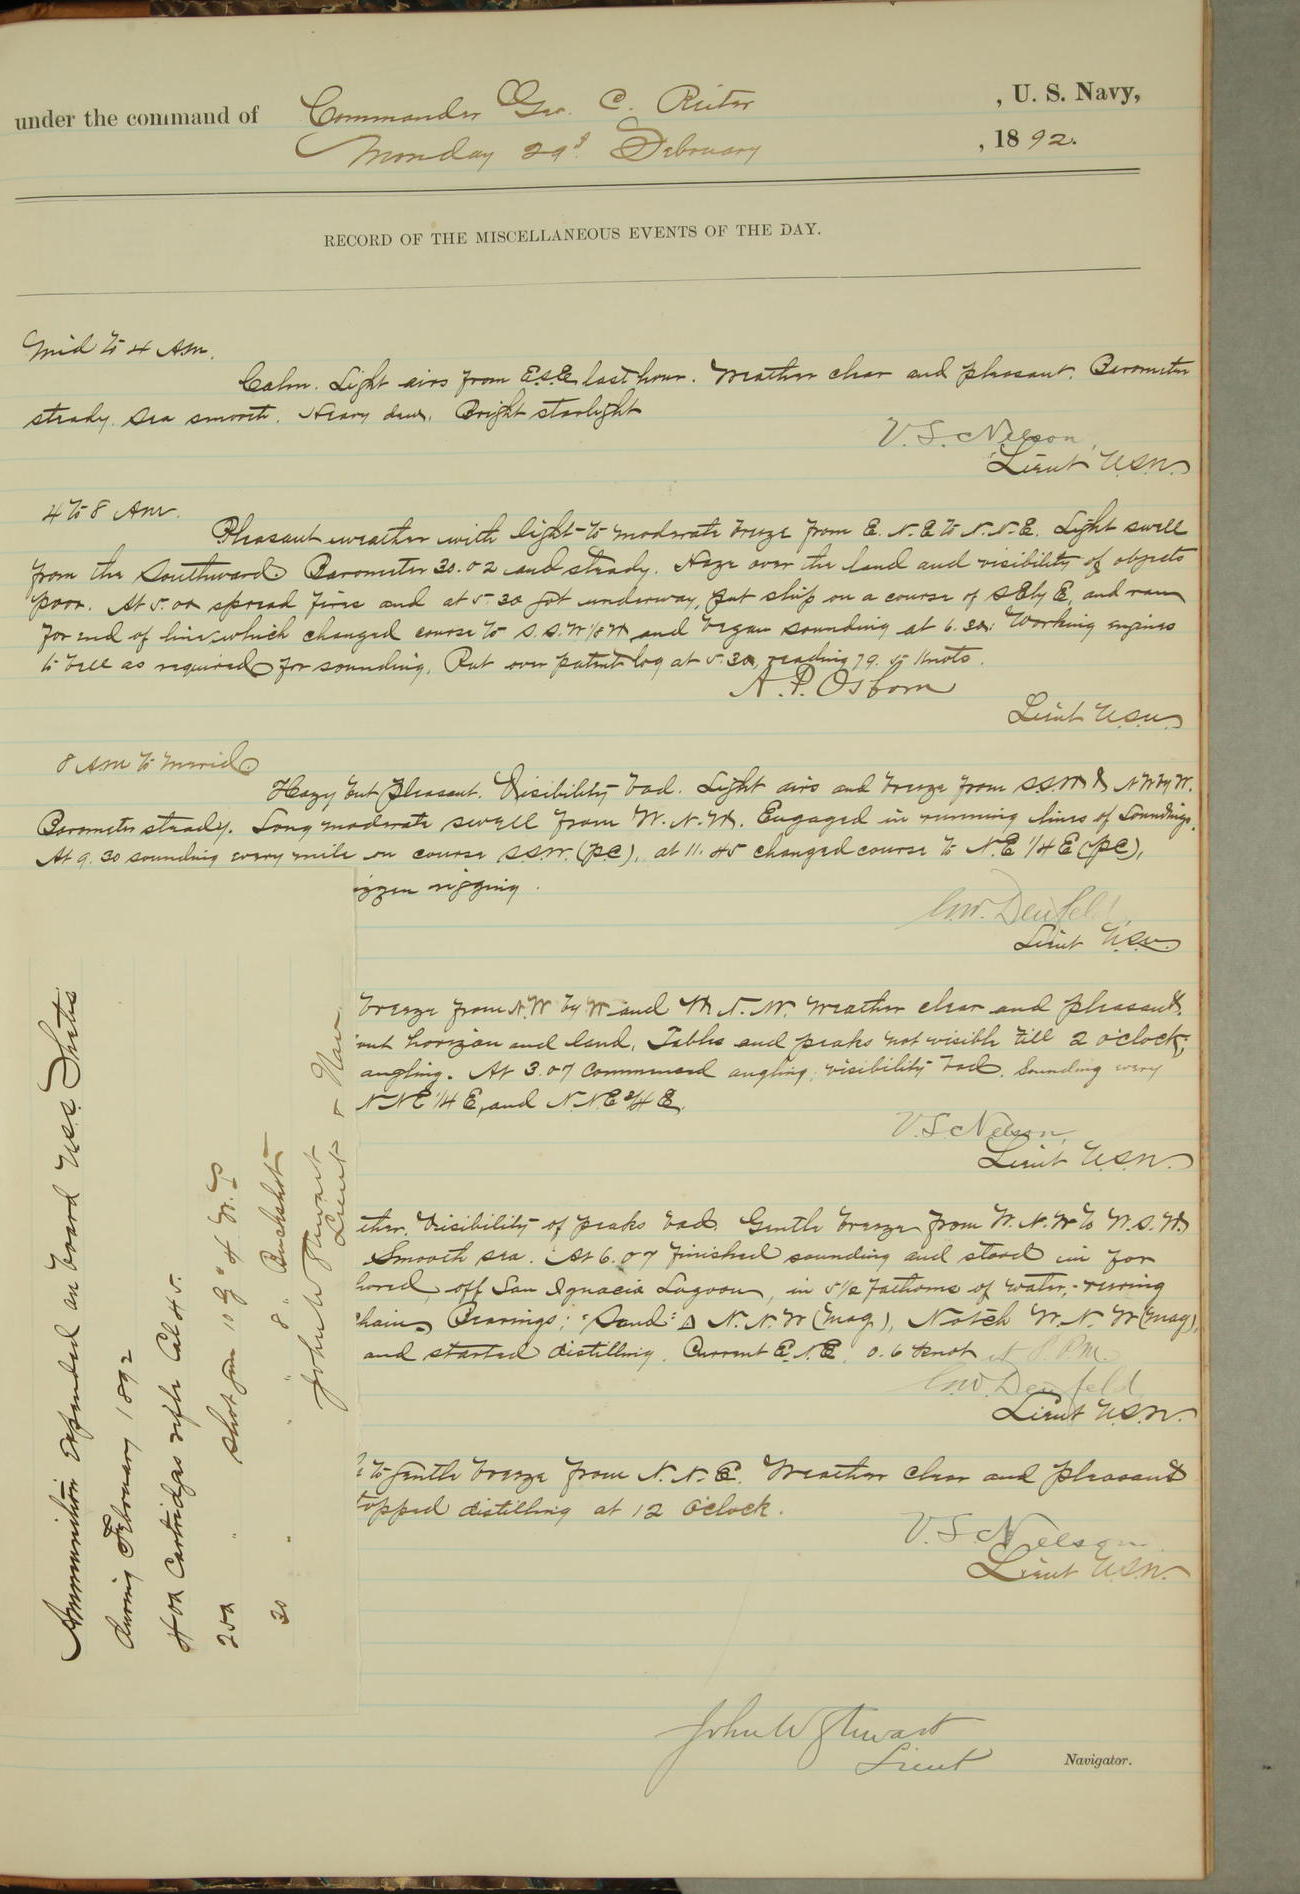 under the command of Commander Geo. C. Reiter, U. S. Navy,
Monday 29th February, 1892.
RECORD OF THE MISCELLANEOUS EVENTS OF THE DAY.
Mid to 4 A.M.
Calm. Light airs from E.S.E. last hour. Weather clear and pleasant. Barometer
steady. Sea smooth. Heavy dew. Bright starlight
V. S. Nelson,
Lieut U.S.N.
4 to 8 A.M.
Pleasant weather with light to moderate breeze from E.N.E to N.N.E. Light swell
from the Southward. Barometer 30.02 and steady. Haze over the land and visibility of objects
poor. At 5.00 spread fires and at 5.30 got underway, put ship on a course of SEly E, and ran
for end of line, which changed course to S.S.W 1/8 W and began sounding at 6.30. Working engines
to bell as required for sounding. Put over patent log at 5.30, reading 79.5 knots.
A. P. Osborn
Lieut U.S.N.
8 A.M. to Merid.
Hazy but pleasant. Visibility bad. Light airs and breeze from SSW & NW by W.
Barometer steady. Long moderate swell from W.N.W. Engaged in running lines of soundings.
At 9.30 sounding every mile on course S.S.W. (p.c), at 11.45 changed course to N.E 1/4 E (p.c),
izzen rigging.
Denfeld,
Lieut U.S.N.
breeze from N.W by W and W.N.W. Weather clear and pleasant,
out horizon and land. Tables and peaks not visible till 2 o'clock,
angling. At 3.07 commenced angling; visibility bad. Sounding every
N.N.E 1/4 E, and N.N.E 3/4 E.
V. S. Nelson,
Lieut U.S.N.
ther. Visibility of peaks bad. Gentle breeze from W.N.W to W.S.W.
Smooth sea. At 6.07 finished sounding and stood in for
hored, off San Ignacio Lagoon, in 5 1/2 fathoms of water, veering
chain. Bearings: "Sand" △ N.N.W (mag), Notch W.N.W (mag),
and started distilling. Current E.N.E. 0.6 knot at 8 P.M.
Denfeld,
Lieut U.S.N.
to gentle breeze from N.N.E. Weather clear and pleasant
topped distilling at 12 o'clock.
V. S. Nelson
Lieut U.S.N.
John W Stewart
Lieut Navigator.
Ammunition expended on board U.S.S. Thetis
during February 1892
400 Cartridges rifle Cal 45.
250 " shot gun 10 g " 4 W.P.
30 " " 8 " Buckshot
John W Stewart
Lieut & Nav.